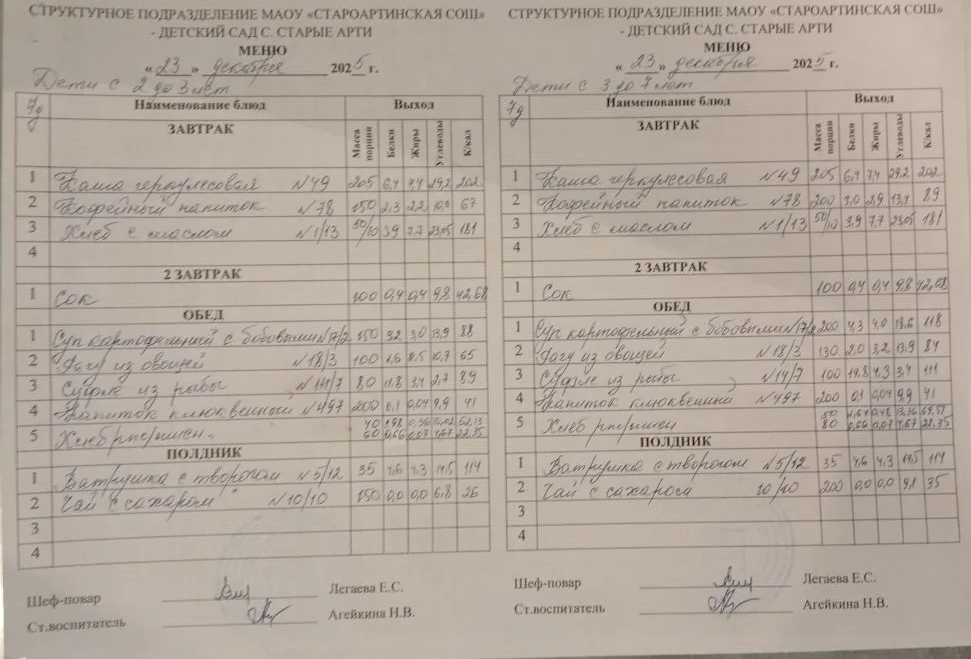 СТРУКТУРНОЕ ПОДРАЗДЕЛЕНИЕ МАОУ «СТАРОАРТИНСКАЯ СОШ»
- ДЕТСКИЙ САД С. СТАРЫЕ АРТИ
МЕНЮ
« 23 » декабря 2025 г.
Дети с 2 до 3 лет
7д Наименование блюд Выход
ЗАВТРАК Масса порции Белки Жиры Углеводы К/кал
1 Каша геркулесовая №49 205 6,4 7,4 29,2 202
2 Кофейный напиток №78 150 2,3 2,2 10,0 67
3 Хлеб с маслом №1/13 50/10 3,9 7,7 23,05 181
4
2 ЗАВТРАК
1 Сок 100 0,4 0,4 9,8 42,68
ОБЕД
1 Суп картофельный с бобовыми №17/2 150 3,2 3,0 13,9 88
2 Рагу из овощей №18/3 100 1,6 10,7 65
3 Суфле из рыбы 80 11,8 3,4 2,7 89
4 Напиток клюквенный №497 200 0,1 0,04 9,9 41
5 Хлеб рж/пшен. 40 60 0,66 0,07 4,67 22,35
ПОЛДНИК
1 Ватрушка с творогом №5/12 35 4,6 4,3 14,5 114
2 Чай с сахаром №10/10 150 0,0 0,0 6,8 26
3
4
Шеф-повар Легаева Е.С.
Ст.воспитатель Агейкина Н.В.
СТРУКТУРНОЕ ПОДРАЗДЕЛЕНИЕ МАОУ «СТАРОАРТИНСКАЯ СОШ»
- ДЕТСКИЙ САД С. СТАРЫЕ АРТИ
МЕНЮ
« 23 » декабря 2025 г.
Дети с 3 до 7 лет
7д Наименование блюд Выход
ЗАВТРАК Масса порции Белки Жиры Углеводы К/кал
1 Каша геркулесовая №49 205 6,4 7,4 29,2 202
2 Кофейный напиток №78 200 3,0 2,9 13,4 89
3 Хлеб с маслом №1/13 50/10 3,9 7,7 23,05 181
4
2 ЗАВТРАК
1 Сок 100 0,4 0,4 9,8 42,68
ОБЕД
1 Суп картофельный с бобовыми №17/2 200 4,3 4,0 18,6 118
2 Рагу из овощей №18/3 130 2,0 3,2 13,9 84
3 Суфле из рыбы №14/7 100 14,8 4,3 3,4 111
4 Напиток клюквенный №497 200 0,1 0,04 9,9 41
5 Хлеб рж/пшен 80 0,66 0,07 4,67 22,35
ПОЛДНИК
1 Ватрушка с творогом №5/12 35 4,6 4,3 14,5 114
2 Чай с сахаром 10/10 200 0,0 0,0 9,1 35
3
4
Шеф-повар Легаева Е.С.
Ст.воспитатель Агейкина Н.В.